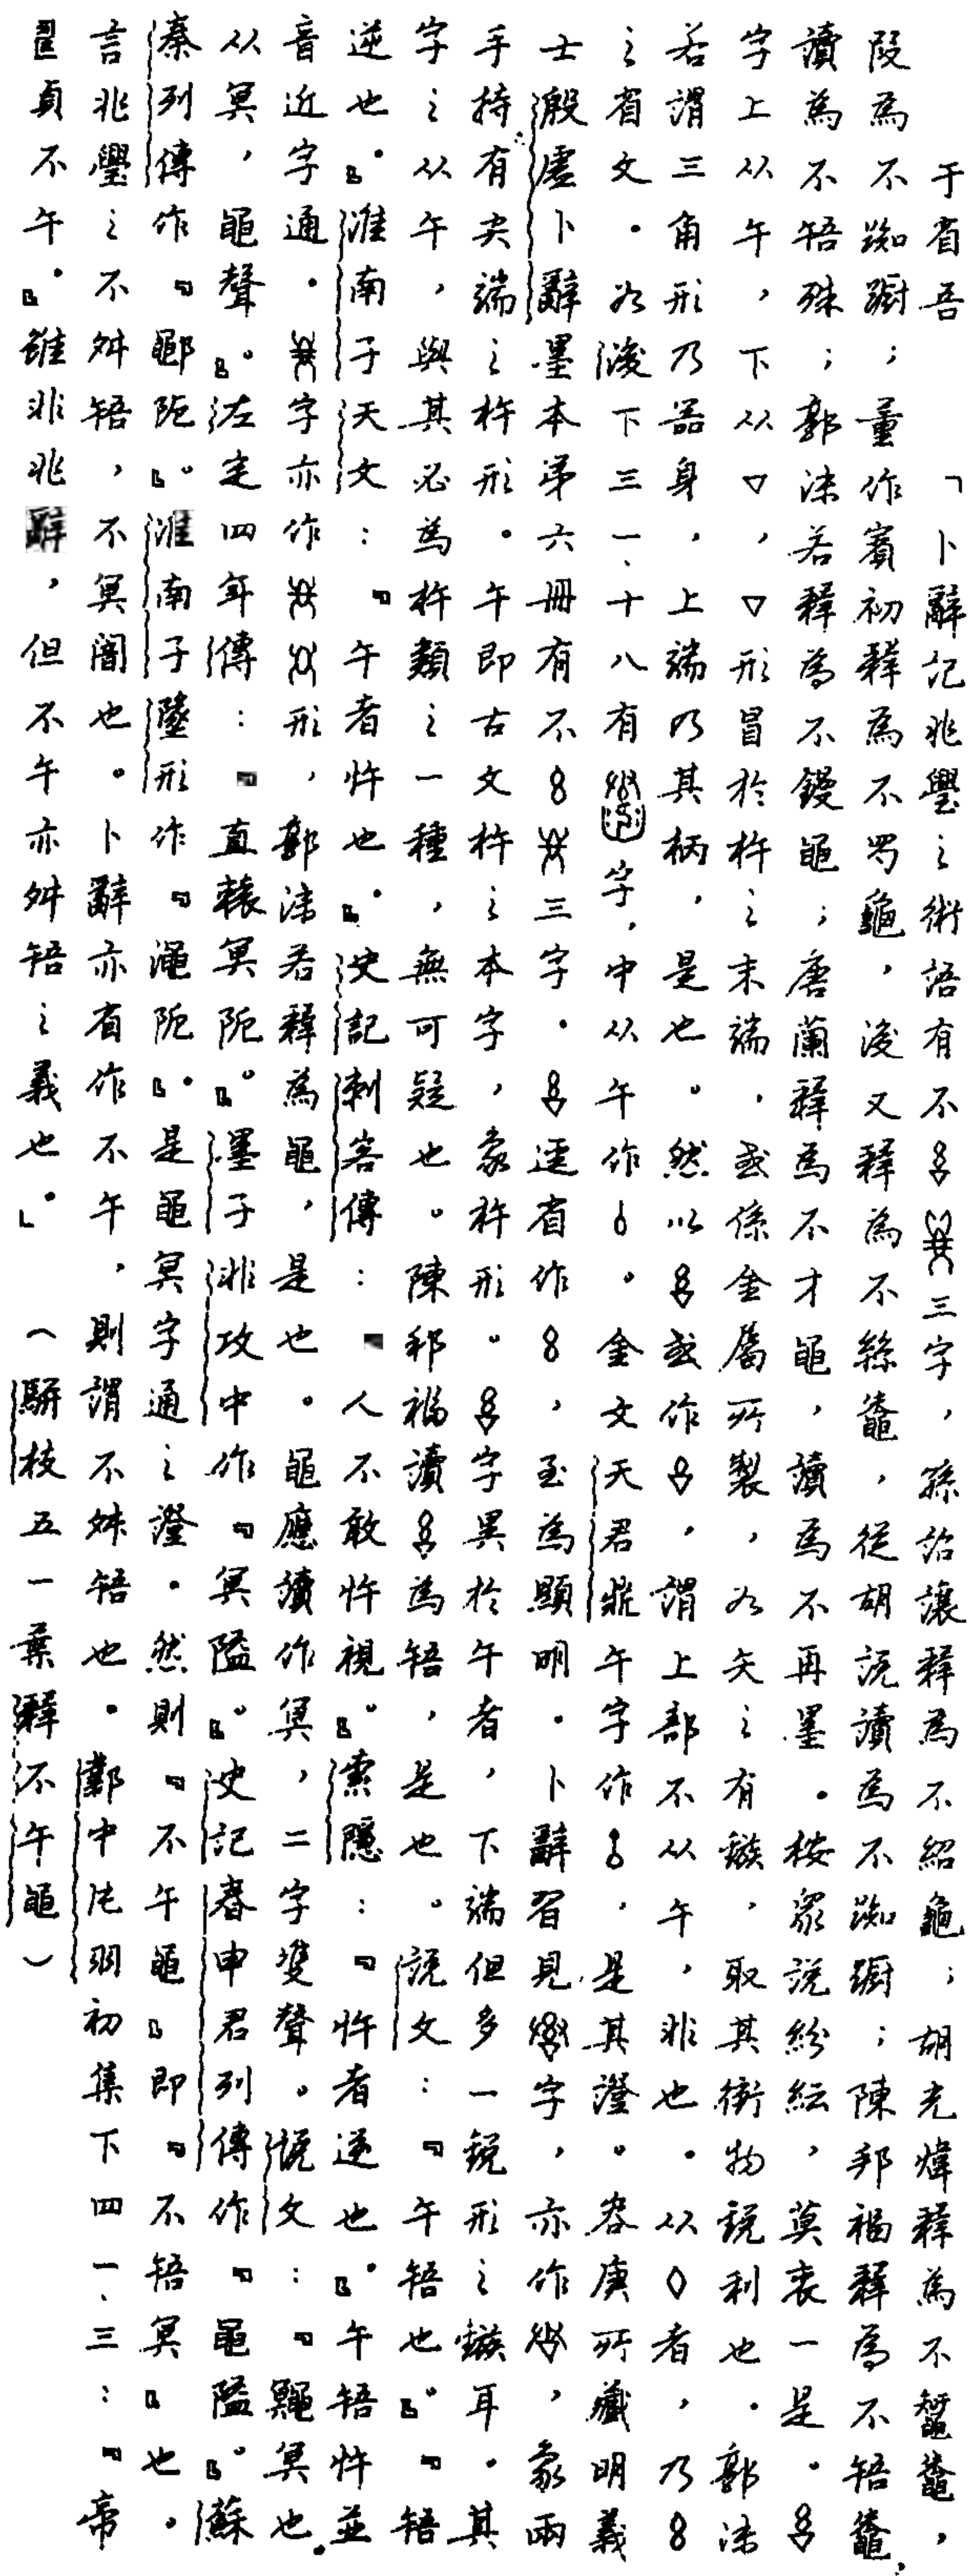 于省吾「卜辭記兆璺之術語有不三字，孫詒讓釋為不紹龜；胡光煒釋為不𪓷鼄，
段為不踟躕；董作賓初釋為不𠱠龜，後又釋為不絲鼄，從胡說讀為不踟躕；陳邦福釋為不牾鼄，
讀為不牾殊；郭沫若釋為不鏝黽；唐蘭釋為不才黽，讀為不再墨。按眾說紛紜，莫衷一是。
字上从午，下从▽，▽形冒於杵之末端，或係金屬所製，如矢之有鏃，取其衝物銳利也。郭沫
若謂三角形乃器身，上端乃其柄，是也。然以或作，謂上部不从午，非也。从◊者，乃
之省文。如後下三一、十八有字，中从午作。金文天君鼎午字作，是其證。容庚所藏明義
士殷虛卜辭墨本第六冊有不三字。逕省作，至為顯明。卜辭習見字，亦作，象兩
手持有尖端之杵形。午即古文杵之本字，象杵形。字異於午者，下端但多一銳形之鏃耳。其
字之从午，與其必為杵類之一種，無可疑也。陳邦福讀為牾，是也。說文：『午牾也。』『牾
逆也。』淮南子天文：『午者忤也。』史記刺客傳：『人不敢忤視。』索隱：『忤者逆也。』午牾忤並
音近字通。字亦作形，郭沫若釋為黽，是也。黽應讀作冥，二字雙聲。說文：『鼆冥也。
从冥，黽聲。』左定四年傳：『直轅冥阨。』墨子非攻中作『冥隘。』史記春申君列傳作『黽隘。』蘇
秦列傳作『鄳阨。』淮南子墬形作『澠阨。』是黽冥字通之證。然則『不午黽』即『不牾冥』也。
言兆璺之不舛牾，不冥闇也。卜辭亦有作不午，則謂不舛牾也。鄴中片羽初集下四一、三：『帝
貞不午。』雖非兆辭，但不午亦舛牾之義也。」（駢枝五一葉釋不午黽）